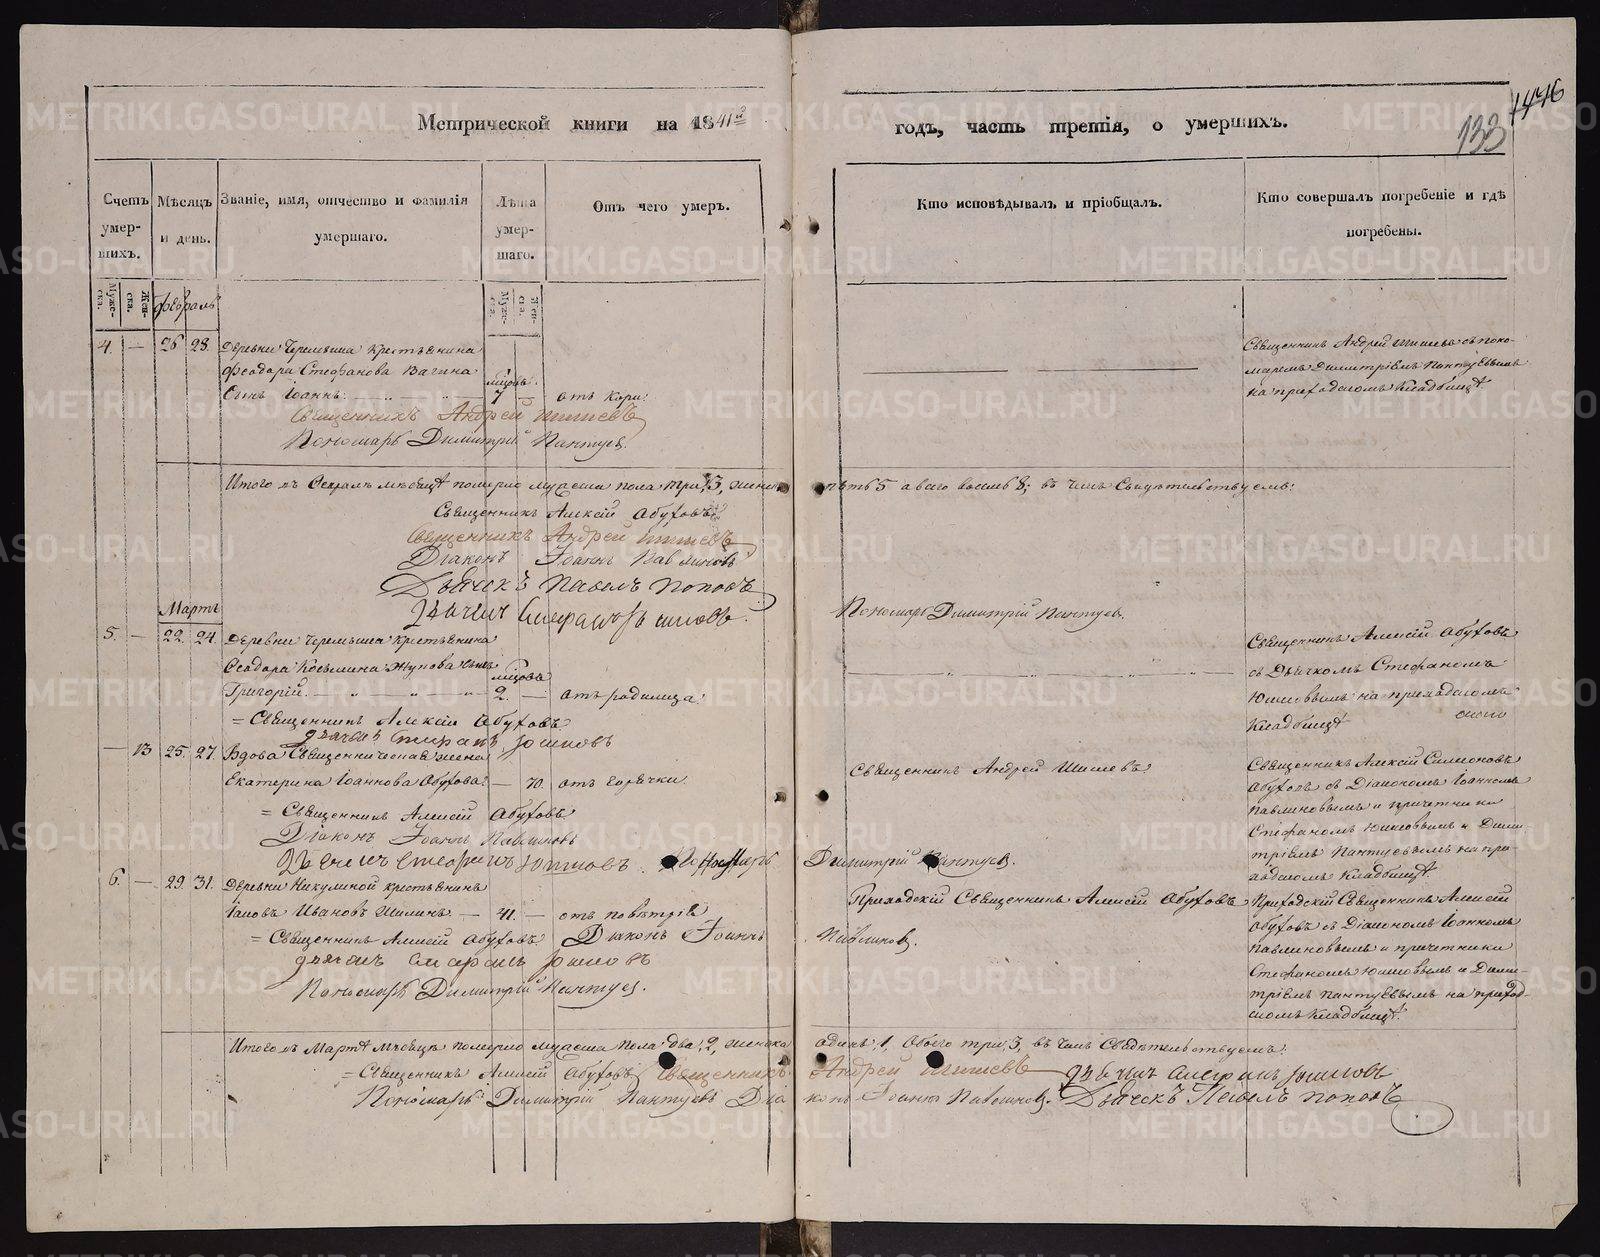 Метрической книги на 1841й
годъ, часть третія, о умершихъ.
1446
133
Счетъ умер-шихъ.
Мѣсяцъ и день.
Званіе, имя, отчество и фамилія умершаго.
Лѣта умер-шаго.
Отъ чего умеръ.
Кто исповѣдывалъ и пріобщалъ.
Кто совершалъ погребеніе и гдѣ погребены.
Мужес-ка.
Жен-ска.
Февраль
Мужес-ка.
Жен-ска.
4. — 26 28. Деревни Черемшина крестьянина
Феодора Стефанова Вагина
мѣсцовъ.
Сынъ Іоаннъ. 7 — отъ кори.
Священникъ Андрей Шишевъ
Пономарь Димитрій Пантуев.
Священникъ Андрей Шишевъ съ поно-
маремъ Димитріемъ Пантуевымъ
на приходскомъ Кладбищѣ
Итого въ Февралѣ мѣсяцѣ померло мужеска пола три, 3, женска
пять 5 а всего восемь 8; въ чемъ Свидѣтельствуемъ:
Священникъ Алексій Обуховъ
Священникъ Андрей Шишевъ
Діаконъ Іоаннъ Павлиновъ
Дьячекъ Павелъ Поповъ
дьячекъ Стефанъ Юшковъ.
Пономарь Димитрій Пантуев.
Мартъ
5. — 22. 24. Деревни Черемшина крестьянина
Феодора Козьмина Жукова сынъ
мѣсцовъ
Григорій. 2. — отъ родимца.
= Священникъ Алексій Обуховъ
дьячекъ Стефанъ Юшковъ
Священникъ Алексій Обуховъ
съ Дьячкомъ Стефаномъ
Юшковымъ на приходскомъ
Кладбищѣ
— 13 25. 27. Вдова Священническая жена
Екатерина Іоаннова Обухова. — 70. отъ горячки
= Священникъ Алексій Обуховъ
Діаконъ Іоаннъ Павлиновъ
Дьячекъ Стефанъ Юшковъ. Пономарь
Димитрій Пантуев.
Священникъ Андрей Шишевъ
Священникъ Алексій Симеоновъ
Обуховъ съ Діакономъ Іоанномъ
Павлиновымъ и причетники
Стефаномъ Юшковымъ и Дими-
тріемъ Пантуевымъ на при-
ходскомъ Кладбищѣ.
6. — 29. 31. Деревни Никулиной крестьянинъ
Іаковъ Ивановъ Шилинъ — 41. — отъ повѣтрія
= Священникъ Алексій Обуховъ Діаконъ Іоаннъ
Павлинов.
дьячекъ Стефанъ Юшковъ
Пономарь Димитрій Пантуев.
Приходскій Священникъ Алексій Обуховъ
Приходскій Священникъ Алексій
Обуховъ съ Діакономъ Іоанномъ
Павлиновымъ и причетники
Стефаномъ Юшковымъ и Дими-
тріемъ Пантуевымъ на приход-
скомъ Кладбищѣ.
Итого въ Мартѣ мѣсяцѣ померло мужеска пола два, 2, женска
одинъ, 1, обоего три, 3, въ чемъ Свидѣтельствуемъ:
= Священникъ Алексій Обуховъ Священникъ
Андрей Шишевъ дьячекъ Стефанъ Юшковъ
Пономарь Димитрій Пантуевъ Діа
конъ Іоаннъ Павлинов. Дьячекъ Павелъ Поповъ
METRIKI.GASO-URAL.RU